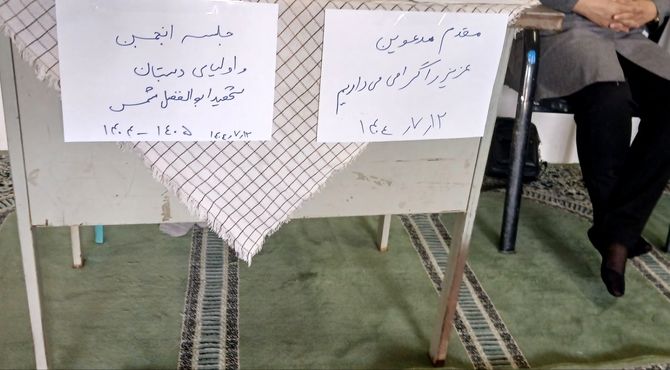 جلسه انجمن
و اولیای دبستان
شهید ابوالفضل شمس
۱۴۰۴ - ۱۴۰۵ ۱۴۰۴/۷/۱۲
مقدم مدعوین
عزیز را گرامی می داریم
۱۴۰۴/۷/۱۲